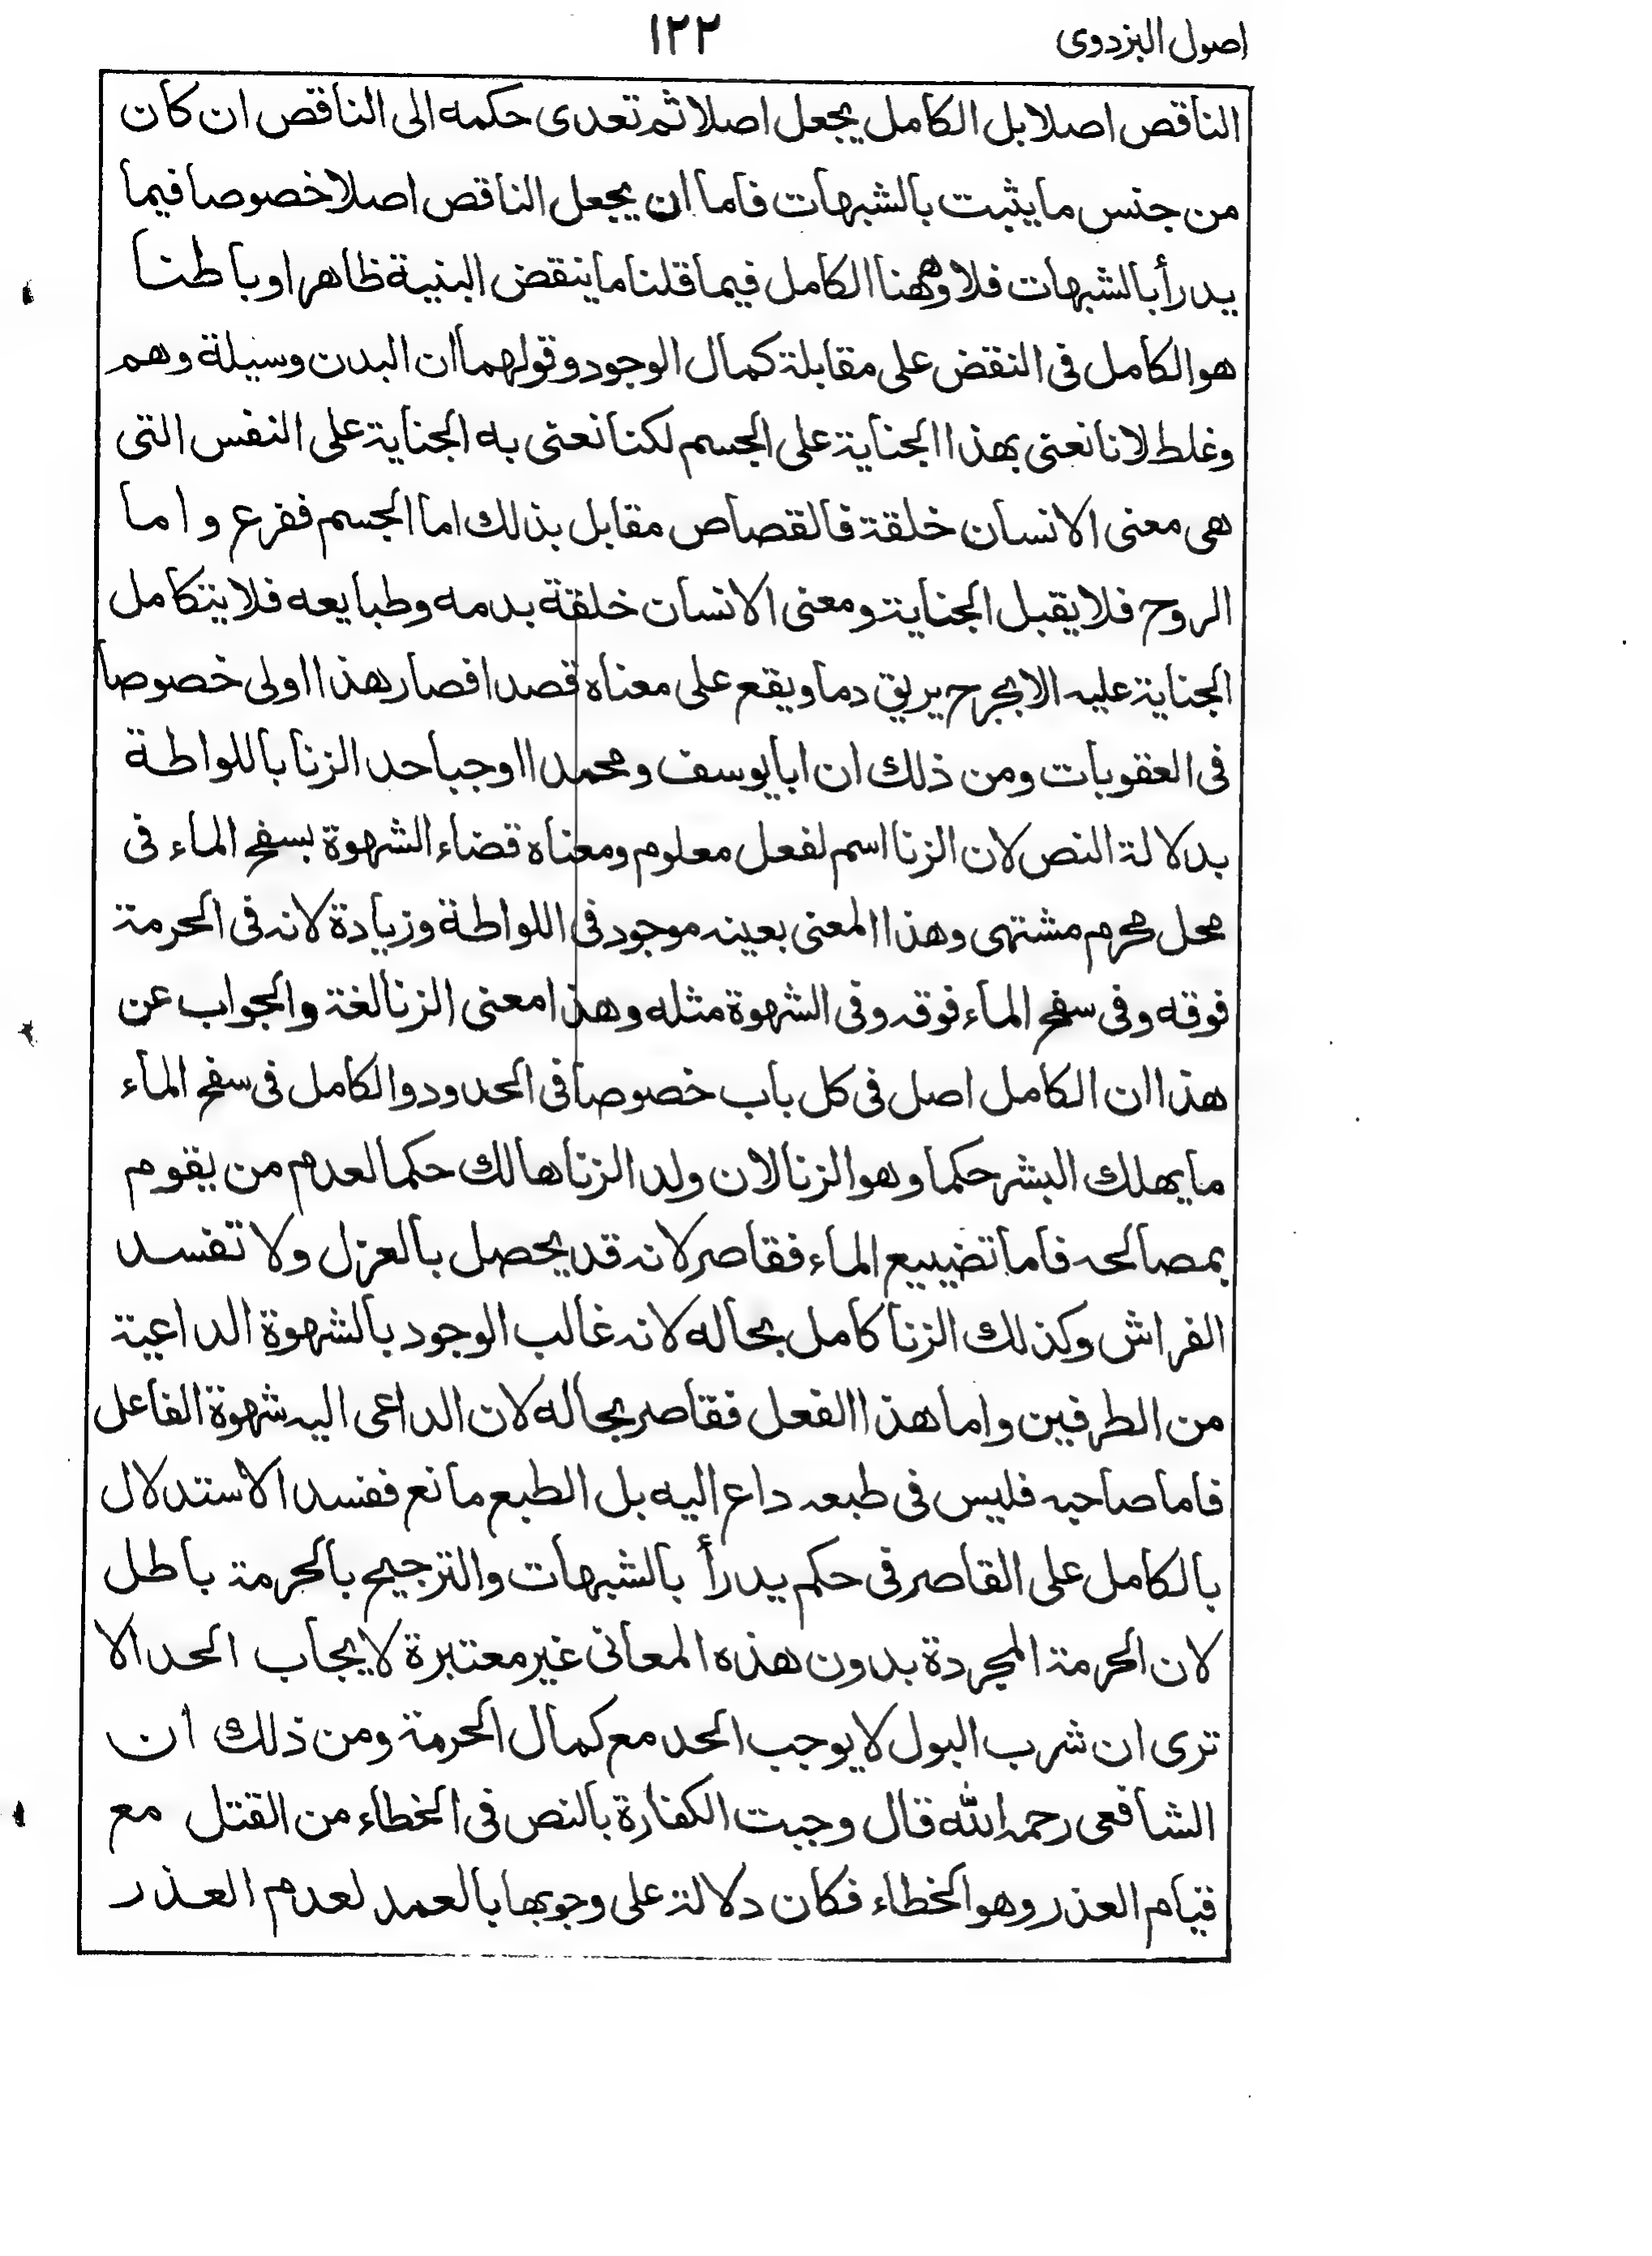 اصول البزدوى
١٢٢
الناقص اصلا بل الكامل يجعل اصلا ثم تعدى حكمه الى الناقص ان كان
من جنس ما يثبت بالشبهات فاما ان يجعل الناقص اصلا خصوصا فيما
يدرأ بالشبهات فلا وههنا الكامل فيما قلنا ما ينقض البنية ظاهرا وباطنا
هو الكامل فى النقض على مقابلة كمال الوجود وقولهما ان البدن وسيلة وهم
وغلط لانا نعنى بهذا الجناية على الجسم لكنا نعنى به الجناية على النفس التى
هى معنى الانسان خلقة فالقصاص مقابل بذلك اما الجسم ففرع واما
الروح فلا يقبل الجناية ومعنى الانسان خلقة بدمه وطبايعه فلا يتكامل
الجناية عليه الا بجرح يريق دما ويقع على معناه قصدا فصار هذا اولى خصوصا
فى العقوبات ومن ذلك ان ابا يوسف ومحمدا اوجبا حد الزنا باللواطة
بدلالة النص لان الزنا اسم لفعل معلوم ومعناه قضاء الشهوة بسفح الماء فى
محل محرم مشتهى وهذا المعنى بعينه موجود فى اللواطة وزيادة لانه فى الحرمة
فوقه وفى سفح الماء فوقه وفى الشهوة مثله وهذا معنى الزنا لغة والجواب عن
هذا ان الكامل اصل فى كل باب خصوصا فى الحدود والكامل فى سفح الماء
ما يهلك البشر حكما وهو الزنا لان ولد الزنا هالك حكما لعدم من يقوم
بمصالحه فاما تضييع الماء فقاصر لانه قد يحصل بالعزل ولا تفسد
الفراش وكذلك الزنا كامل بحاله لانه غالب الوجود بالشهوة الداعية
من الطرفين واما هذا الفعل فقاصر بحاله لان الداعى اليه شهوة الفاعل
فاما صاحبه فليس فى طبعه داع اليه بل الطبع مانع ففسد الاستدلال
بالكامل على القاصر فى حكم يدرأ بالشبهات والترجيح بالحرمة باطل
لان الحرمة المجردة بدون هذه المعانى غير معتبرة لايجاب الحد الا
ترى ان شرب البول لا يوجب الحد مع كمال الحرمة ومن ذلك ان
الشافعى رحمه الله قال وجبت الكفارة بالنص فى الخطاء من القتل مع
قيام العذر وهو الخطاء فكان دلالة على وجوبها بالعمد لعدم العذر